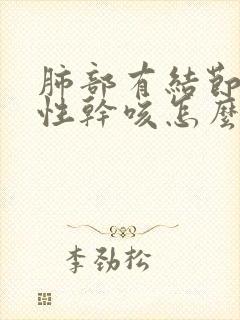 肺部有結節
性幹咳怎麼
李劲松